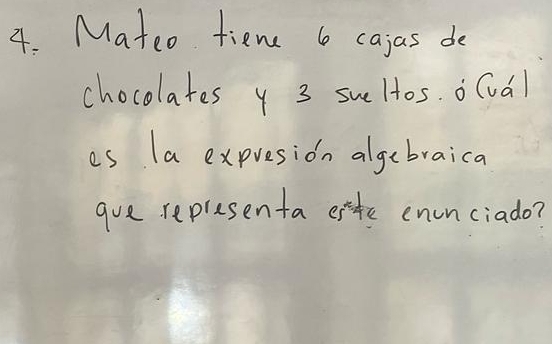 4. Mateo tiene 6 cajas de
chocolates y 3 sueltos. ¿Cuál
es la expresión algebraica
que representa este enunciado?